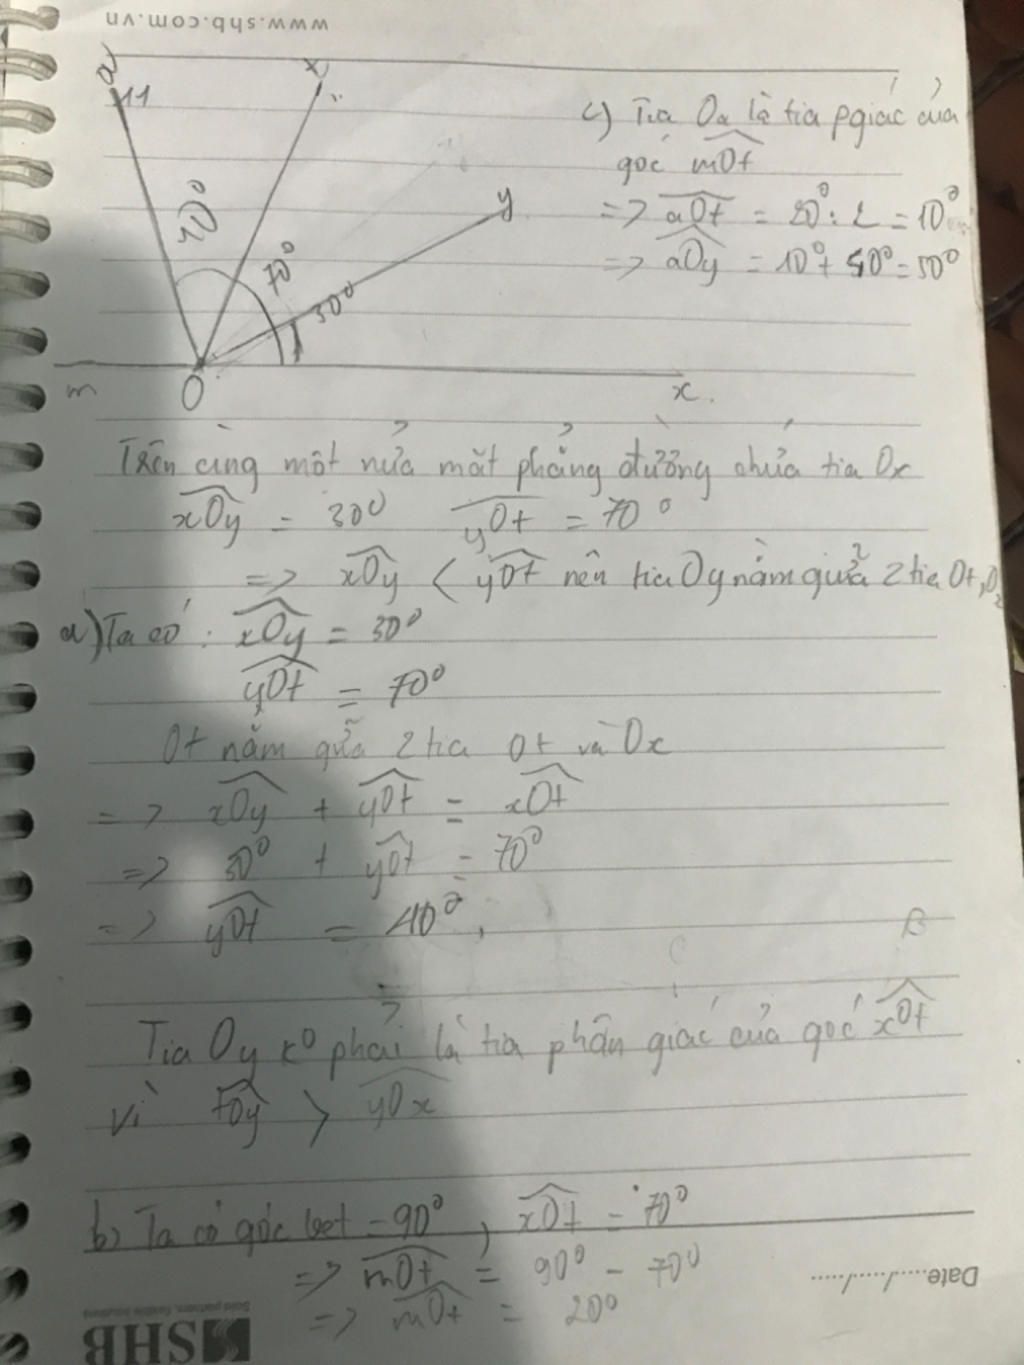 www.shb.com.vn
a
t
y
40°
70°
30°
m
O
x
c) Tia Oa là tia pgiác của
góc mOt
=> aOt = 20° : 2 = 10°
=> aOy = 10° + 40° = 50°
Trên cùng một nửa mặt phẳng đường chứa tia Ox
xOy = 30° yOt = 70°
=> xOy < yOt nên tia Oy nằm giữa 2 tia Ot, Ox
a) Ta có : xOy = 30°
yOt = 70°
Ot nằm giữa 2 tia Ot và Ox
=> xOy + yOt = xOt
=> 30° + yOt = 70°
=> yOt = 40°
B
Tia Oy k° phải là tia phân giác của góc xOt
vì tOy > yOx
b) Ta có góc bẹt = 90° , xOt = 70°
=> mOt = 90° - 70°
=> mOt = 20°
Date....../....../......
SHB
Solid partners, flexible solutions